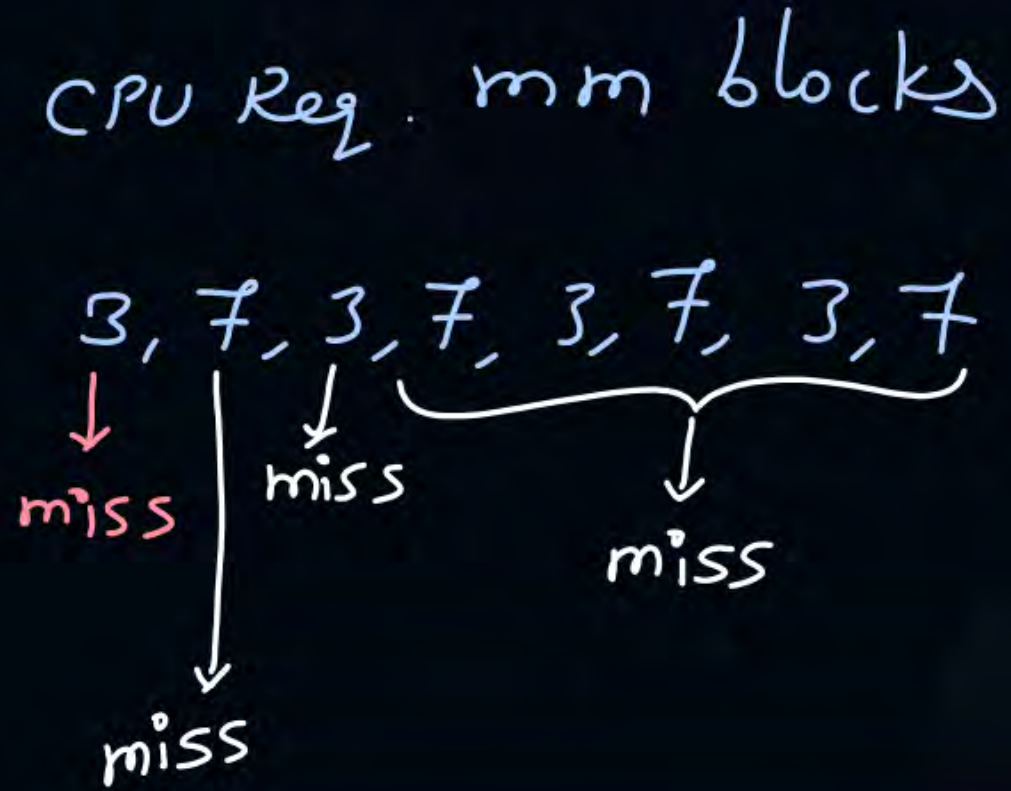 CPU Req. mm blocks
3, 7, 3, 7, 3, 7, 3, 7
miss
miss
miss
miss